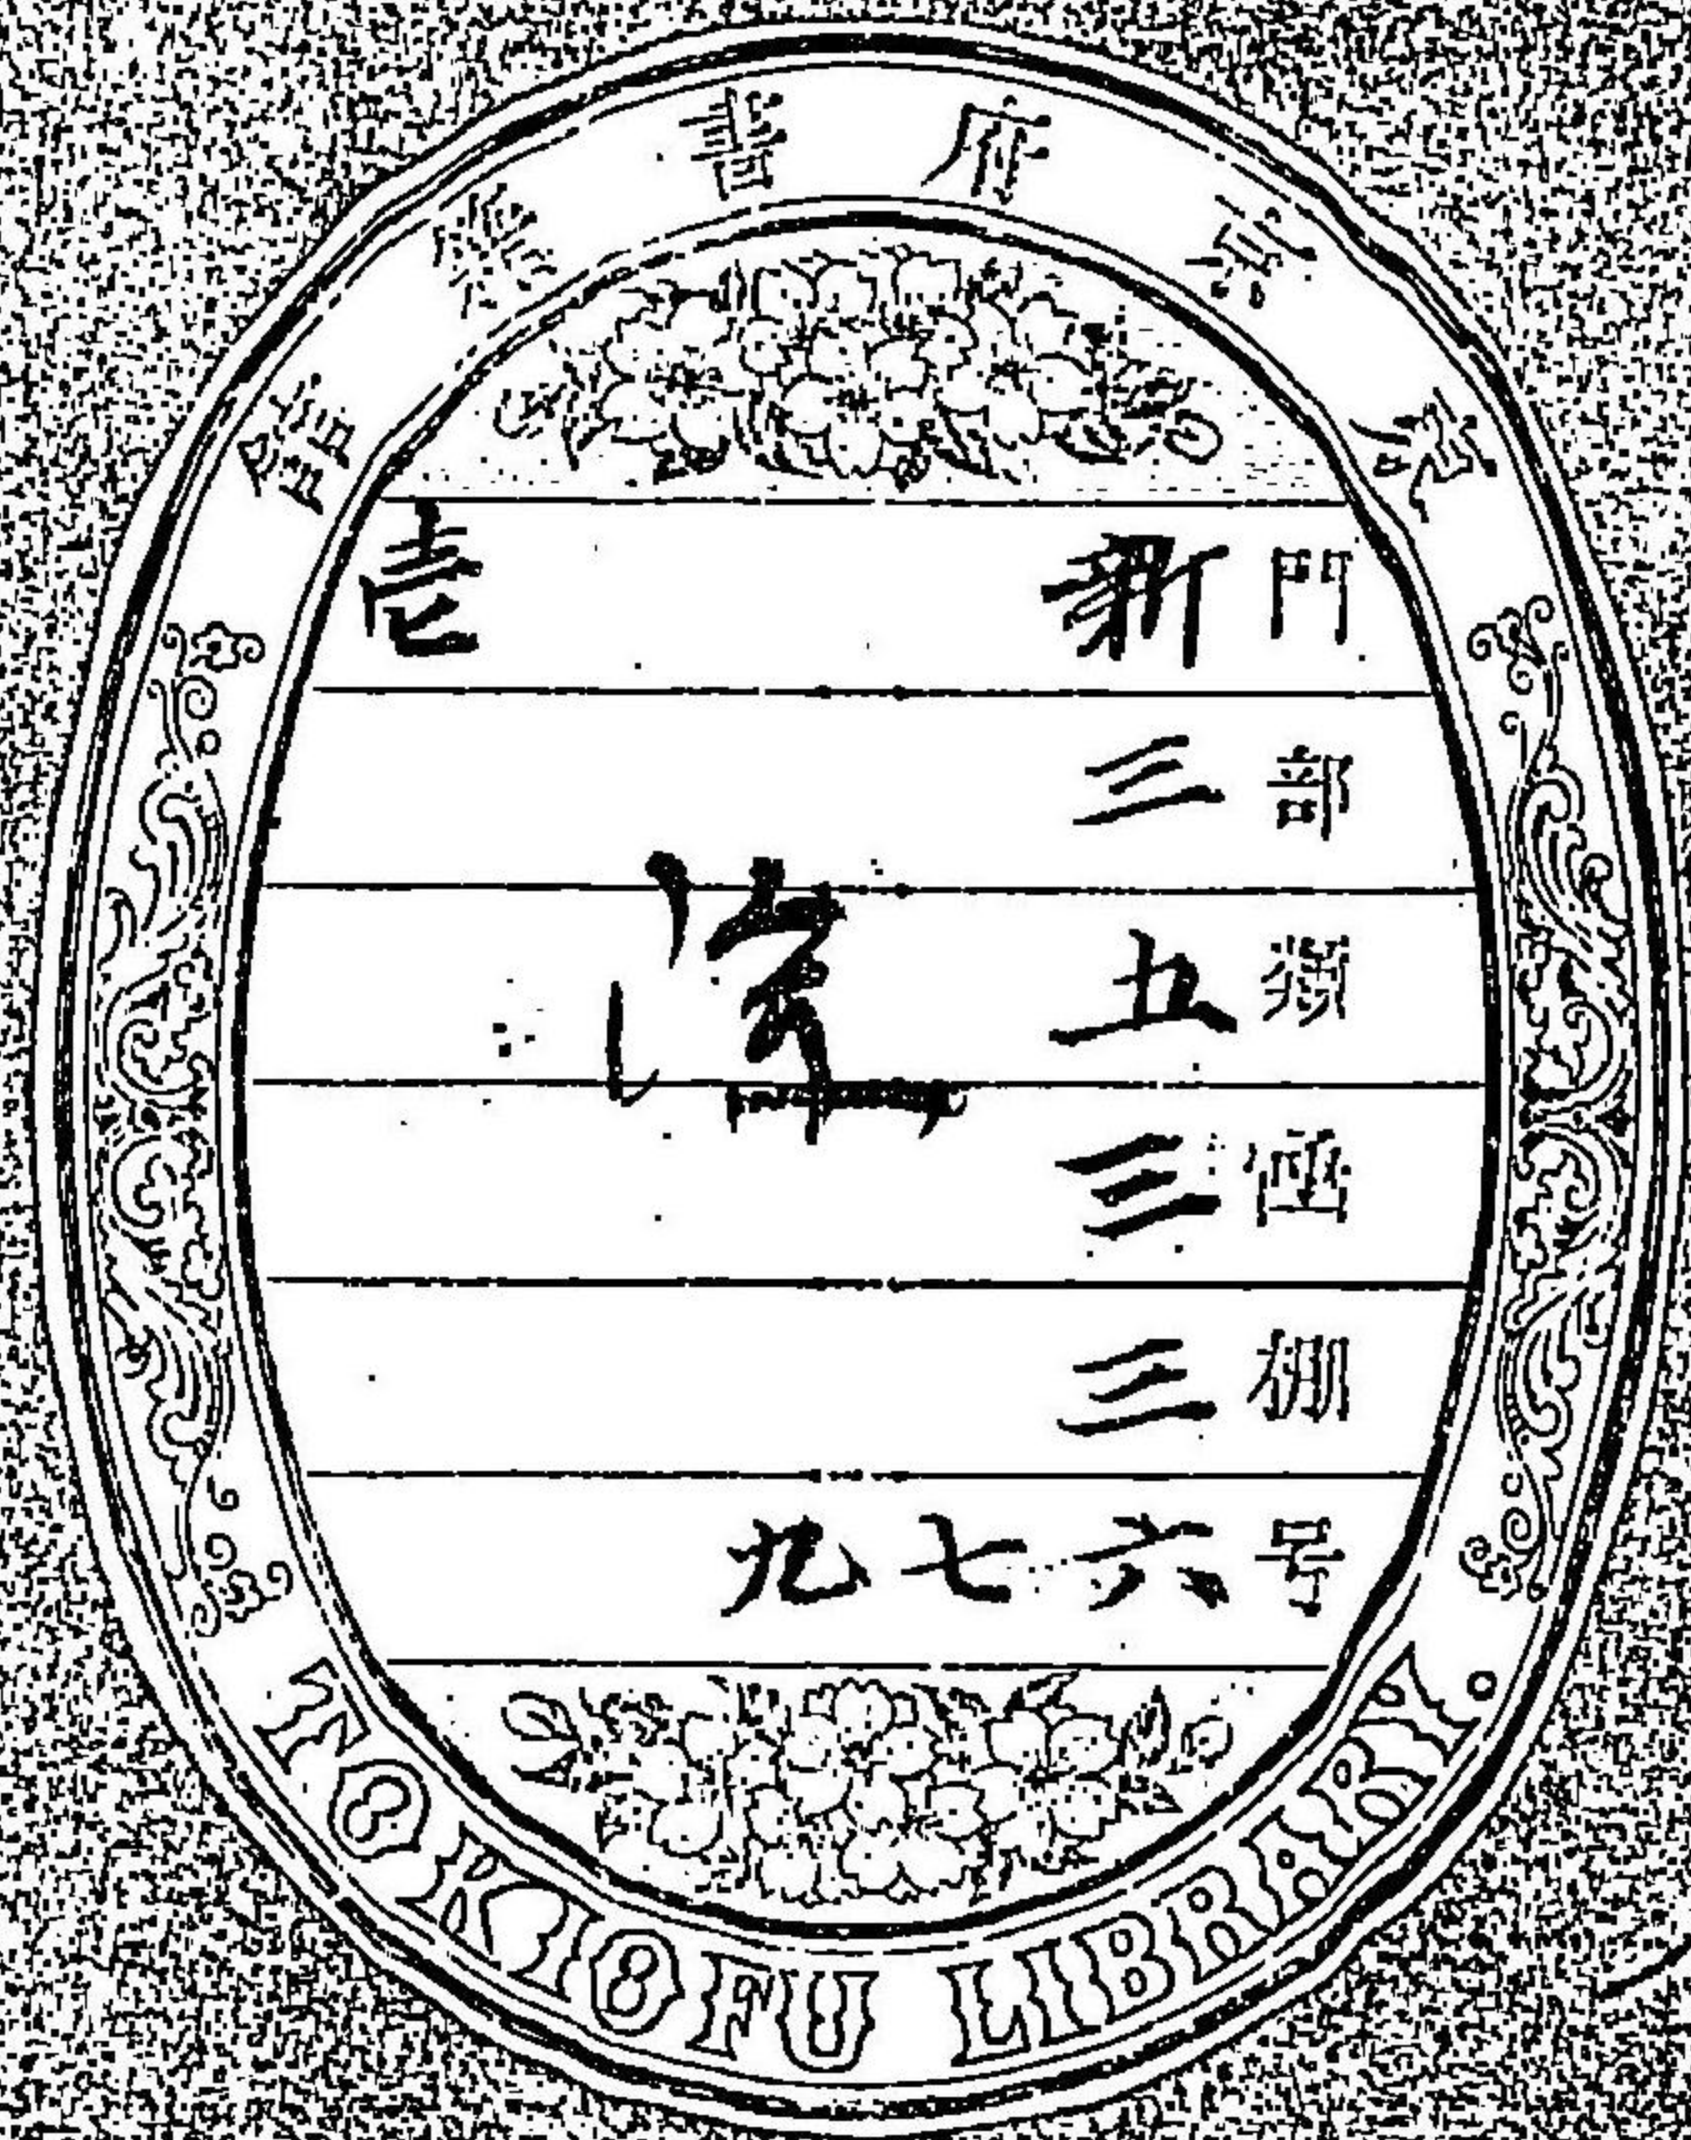 東京府書籍館
門 新 壱
部 三
類 五
凾 三
棚 三
号 六七九
TOKIOFU LIBRARY.